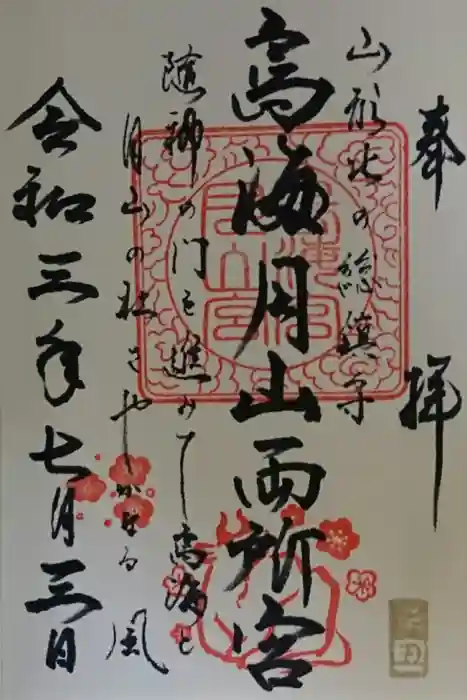 奉拝
山形北の総鎮守
鳥海月山両所宮
随神の門を進みて鳥海と
月山の社さや 風
令和三年七月三日
辛丑